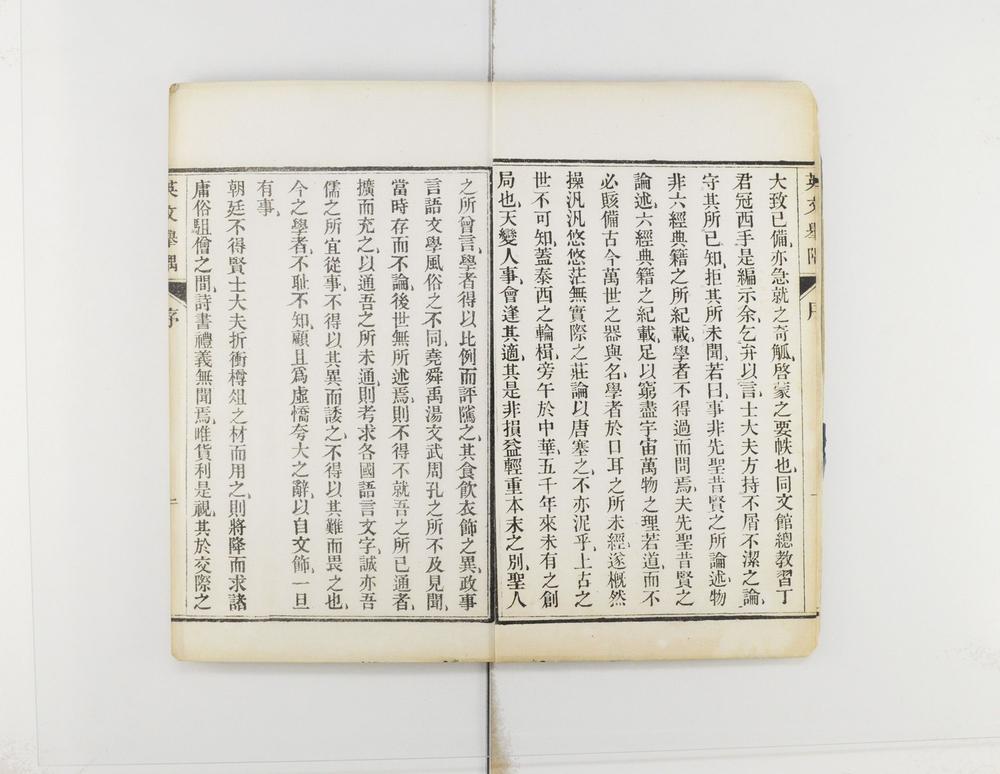 英文舉隅
序
一
大致已備亦急就之奇觚啓蒙之要帙也同文館總教習丁
君冠西手是編示余乞弁以言士大夫方持不屑不潔之論
守其所已知拒其所未聞若曰事非先聖昔賢之所論述物
非六經典籍之所紀載學者不得過而問焉夫先聖昔賢之
論述六經典籍之紀載足以窮盡宇宙萬物之理若道而不
必賅備古今萬世之器與名學者於口耳之所未經遂概然
操汎汎悠悠茫無實際之莊論以唐塞之不亦泥乎上古之
世不可知蓋泰西之輪楫旁午於中華五千年來未有之創
局也天變人事會逢其適其是非損益輕重本末之別聖人
之所曾言學者得以比例而評隲之其食飲衣飾之異政事
言語文學風俗之不同堯舜禹湯文武周孔之所不及見聞
當時存而不論後世無所述焉則不得不就吾之所已通者
擴而充之以通吾之所未通則考求各國語言文字誠亦吾
儒之所宜從事不得以其異而諉之不得以其難而畏之也
今之學者不恥不知顧且爲虛憍夸大之辭以自文飾一旦
有事
朝廷不得賢士大夫折衝樽俎之材而用之則將降而求諸
庸俗駔儈之間詩書禮義無聞焉唯貨利是視其於交際之
英文舉隅
序
二